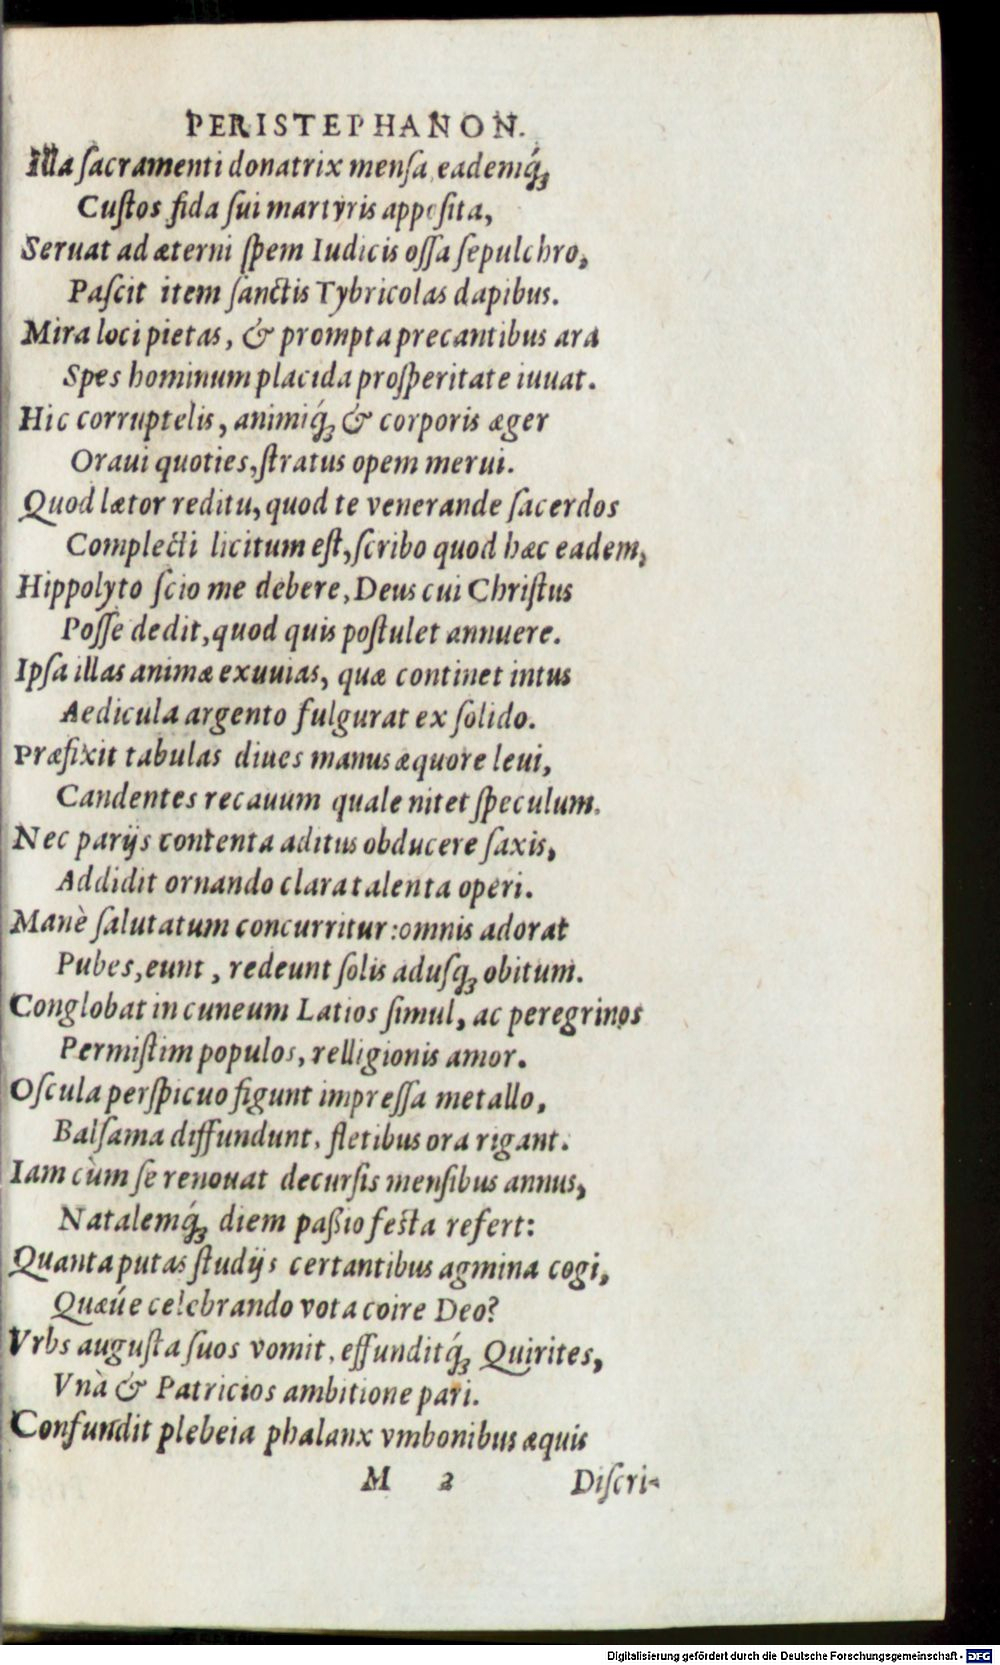 PERISTEPHANON.
Illa ſacramenti donatrix menſa eademq́ꝫ
Cuſtos fida ſui martyris appoſita,
Seruat ad æterni ſpem Iudicis oſſa ſepulchro,
Paſcit item ſanctis Tybricolas dapibus.
Mira loci pietas, & prompta precantibus ara
Spes hominum placida proſperitate iuuat.
Hic corruptelis, animiq́ꝫ & corporis æger
Oraui quoties, ſtratus opem merui.
Quod lætor reditu, quod te venerande ſacerdos
Complecti licitum eſt, ſcribo quod hæc eadem,
Hippolyto ſcio me debere, Deus cui Chriſtus
Poſſe dedit, quod quis poſtulet annuere.
Ipſa illas animæ exuuias, quæ continet intus
Aedicula argento fulgurat ex ſolido.
Præfixit tabulas diues manus æquore leui,
Candentes recauum quale nitet ſpeculum.
Nec parijs contenta aditus obducere ſaxis,
Addidit ornando clara talenta operi.
Manè ſalutatum concurritur: omnis adorat
Pubes, eunt, redeunt ſolis aduſqꝫ obitum.
Conglobat in cuneum Latios ſimul, ac peregrinos
Permiſtim populos, relligionis amor.
Oſcula perſpicuo figunt impreſſa metallo,
Balſama diffundunt, fletibus ora rigant.
Iam cùm ſe renouat decurſis menſibus annus,
Natalemq́ꝫ diem paßio feſta refert:
Quanta putas ſtudijs certantibus agmina cogi,
Quæúe celebrando vota coire Deo?
Vrbs auguſta ſuos vomit, effunditq́ꝫ Quirites,
Vnà & Patricios ambitione pari.
Confundit plebeia phalanx vmbonibus æquis
M 2 Diſcri-
Digitalisierung gefördert durch die Deutsche Forschungsgemeinschaft - DFG